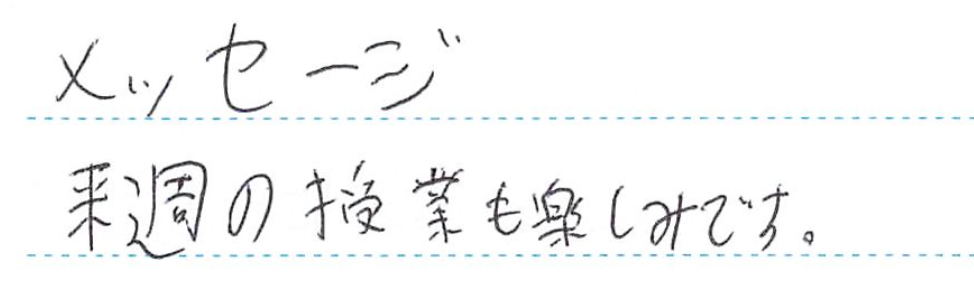 メッセージ
来週の授業も楽しみです。